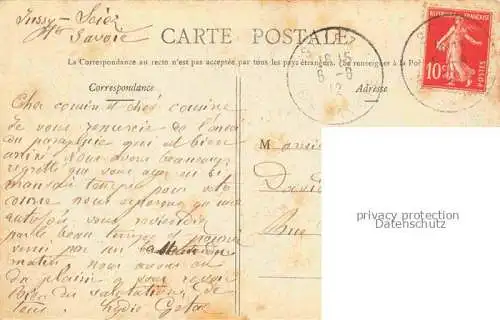 Jussy - Sciez
Hte Savoie
CARTE POSTALE
La Correspondance au recto n'est pas acceptée par tous les pays étrangers. (Se renseigner à la Po
Correspondance
Adresse
RÉPUBLIQUE FRANÇAISE
10c
POSTES
6 - 8
12
Cher cousin et chère cousine
Je vous remercie de l'envoi
du parapluie qui est bien
arrivé. Nous avons beaucoup
regretté que vous ayez un si
mauvais temps pour votre
course nous espérons qu'une
autre fois vous reviendrez
par le beau temps et
venir par un
matin, nous avons eu
du plaisir à vous revoir
Bien des salutations de
tous. Lydie
M onsieur
David
Rue
privacy protection
Datenschutz